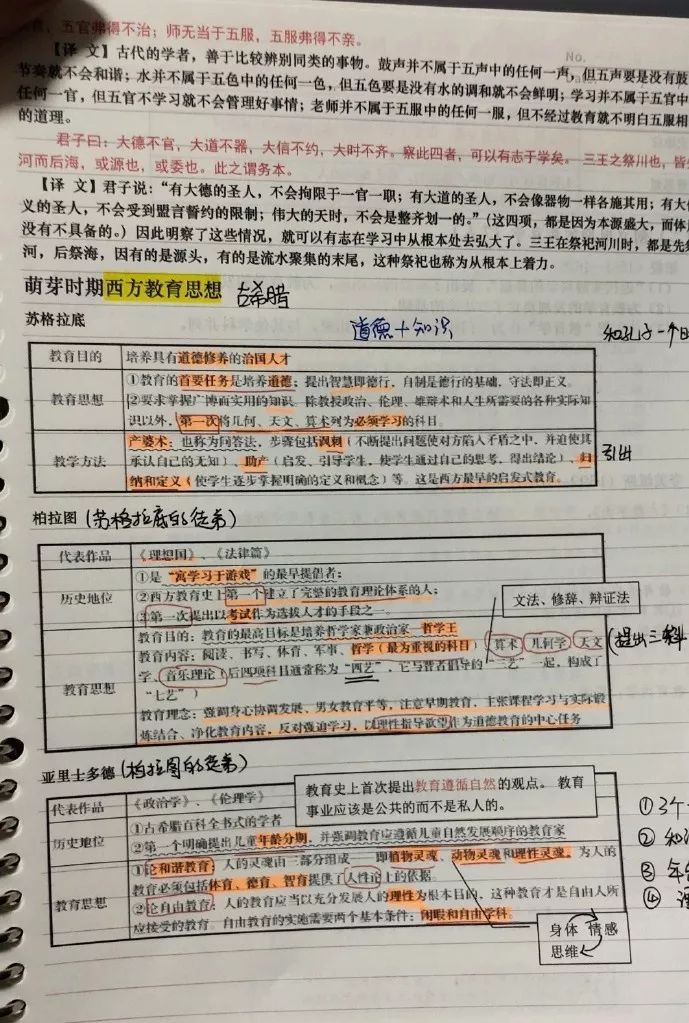 官，五官弗得不治；师无当于五服，五服弗得不亲。
No.
【译 文】古代的学者，善于比较辨别同类的事物。鼓声并不属于五声中的任何一声，但五声要是没有鼓
节奏就不会和谐；水并不属于五色中的任何一色，但五色要是没有水的调和就不会鲜明；学习并不属于五官中
任何一官，但五官不学习就不会管理好事情；老师并不属于五服中的任何一服，但不经过教育就不明白五服相
的道理。
君子曰：大德不官，大道不器，大信不约，大时不齐。察此四者，可以有志于学矣。三王之祭川也，皆先
河而后海，或源也，或委也。此之谓务本。
【译 文】君子说：“有大德的圣人，不会拘限于一官一职；有大道的圣人，不会像器物一样各施其用；有大信
义的圣人，不会受到盟言誓约的限制；伟大的天时，不会是整齐划一的。”（这四项，都是因为本源盛大，而体
没有不具备的。）因此明察了这些情况，就可以有志在学习中从根本处去弘大了。三王在祭祀河川时，都是先祭
河，后祭海，因有的是源头，有的是流水聚集的末尾，这种祭祀也称为从根本上着力。
萌芽时期西方教育思想 古希腊
苏格拉底 道德+知识 和孔子一个时
教育目的 培养具有道德修养的治国人才
教育思想 ①教育的首要任务是培养道德；提出智慧即德行，自制是德行的基础，守法即正义。
②要求掌握广博而实用的知识。除教授政治、伦理、雄辩术和人生所需要的各种实际知
识以外，第一次将几何、天文、算术列为必须学习的科目。
教学方法 产婆术：也称为问答法，步骤包括讽刺（不断提出问题使对方陷入矛盾之中，并迫使其
承认自己的无知）、助产（启发、引导学生，使学生通过自己的思考，得出结论）、归 引出
纳和定义（使学生逐步掌握明确的定义和概念）等。这是西方最早的启发式教育。
柏拉图 (苏格拉底的徒弟)
代表作品 《理想国》、《法律篇》
历史地位 ①是“寓学习于游戏”的最早提倡者；
②西方教育史上第一个建立了完整的教育理论体系的人；
③第一次提出以考试作为选拔人才的手段之一。
文法、修辞、辩证法
教育思想 教育目的：教育的最高目标是培养哲学家兼政治家—哲学王
教育内容：阅读、书写、体育、军事、哲学（最为重视的科目）、算术、几何学、天文 (提出三科
学、音乐理论（后四项科目通常称为“四艺”，它与智者倡导的“三艺”一起，构成了
“七艺”）
教育理念：强调身心协调发展、男女教育平等，注意早期教育，主张课程学习与实际锻
炼结合、净化教育内容，反对强迫学习，以理性指导欲望作为道德教育的中心任务
亚里士多德 (柏拉图的徒弟)
教育史上首次提出教育遵循自然的观点。教育
事业应该是公共的而不是私人的。
代表作品 《政治学》、《伦理学》
历史地位 ①古希腊百科全书式的学者
②第一个明确提出儿童年龄分期，并强调教育应遵循儿童自然发展顺序的教育家
教育思想 ①论和谐教育：人的灵魂由三部分组成——即植物灵魂、动物灵魂和理性灵魂，为人的
教育必须包括体育、德育、智育提供了人性论上的依据。
②论自由教育：人的教育应当以充分发展人的理性为根本目的，这种教育才是自由人所
应接受的教育。自由教育的实施需要两个基本条件：闲暇和自由学科。
身体 情感
思维
①3个
②和
③年
④